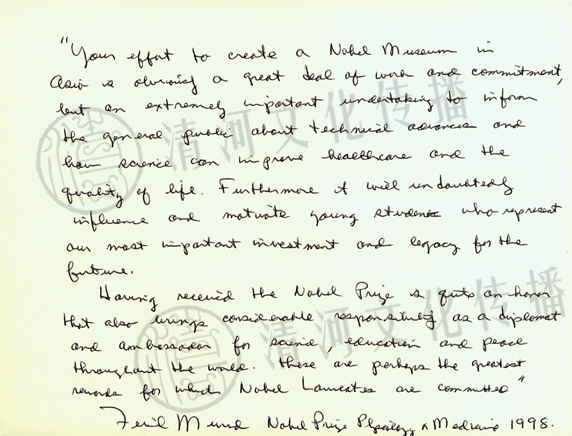 "Your effort to create a Nobel Museum in
Asia is obviously a great deal of work and commitment,
but an extremely important undertaking to inform
the general public about technical advances and
how science can improve healthcare and the
quality of life. Furthermore it will undoubtedly
influence and motivate young students who represent
our most important investment and legacy for the
future.
Having received the Nobel Prize is quite an honor
that also brings considerable responsibility as a diplomat
and ambassador for science, education and peace
throughout the world. These are perhaps the greatest
rewards for which Nobel Laureates are committed"
Ferid Murad Nobel Prize Physiology & Medicine 1998.
清河文化传播
清河文化传播